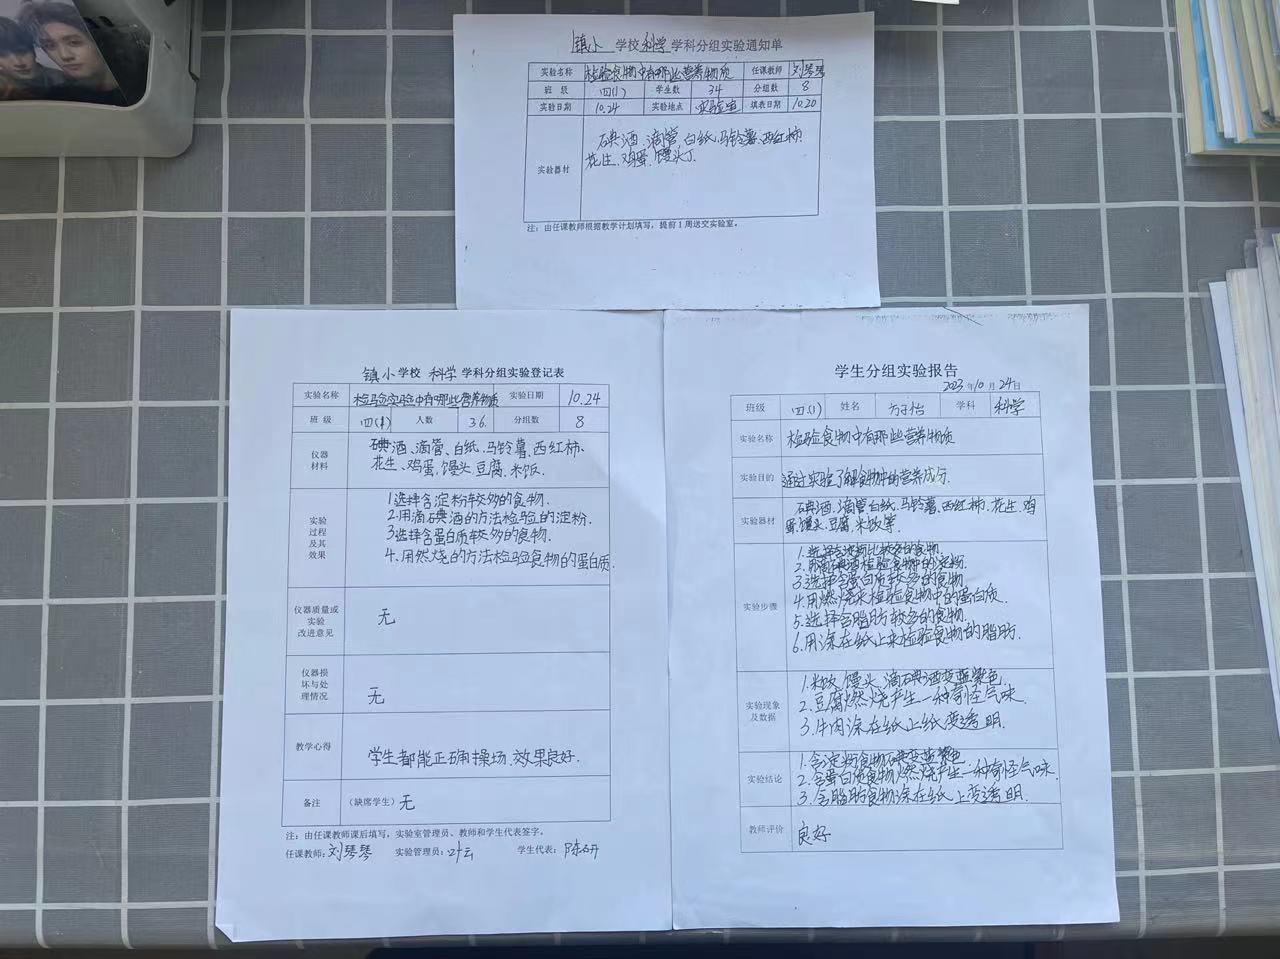 镇小 学校 科学 学科分组实验通知单
实验名称 检验食物中有哪些营养物质 任课教师 刘琴琴
班 级 四(1) 学生数 34 分组数 8
实验日期 10.24 实验地点 实验室 填表日期 10.20
实验器材
碘酒、滴管、白纸、马铃薯、西红柿、
花生、鸡蛋、馒头
注：由任课教师根据教学计划填写，提前1周送交实验室。
镇小学校 科学 学科分组实验登记表
实验名称 检验实验中有哪些营养物质 实验日期 10.24
班 级 四(1) 人数 36. 分组数 8
仪器
材料
碘酒、滴管、白纸、马铃薯、西红柿、
花生、鸡蛋、馒头、豆腐、米饭.
实验
过程
及其
效果
1.选择含淀粉较多的食物.
2.用滴碘酒的方法检验的淀粉.
3.选择含蛋白质较多的食物.
4.用燃烧的方法检验食物的蛋白质.
仪器质量或
实验
改进意见
无
仪器损
坏与处
理情况
无
教学心得
学生都能正确操场.效果良好.
备注 (缺席学生) 无
注：由任课教师课后填写，实验室管理员、教师和学生代表签字。
任课教师：刘琴琴 实验管理员：叶云 学生代表：陈研
学生分组实验报告
2023年10月24日
班级 四(1) 姓名 方子怡 学科 科学
实验名称 检验食物中有哪些营养物质
实验目的 通过实验了解食物中的营养成分.
实验器材
碘酒、滴管白纸、马铃薯、西红柿、花生、鸡
蛋、馒头、豆腐、米饭等.
实验步骤
1.选择含淀粉比较多的食物.
2.用滴碘酒检验食物中的淀粉.
3.选择含蛋白质较多的食物
4.用燃烧来检验食物中的蛋白质.
5.选择含脂肪较多的食物.
6.用涂在纸上来检验食物的脂肪.
实验现象
及数据
1.米饭、馒头、滴碘酒变蓝紫色.
2.豆腐燃烧产生一种奇怪气味.
3.牛肉涂在纸上纸变透明.
实验结论
1.含淀粉食物碘变蓝紫色
2.含蛋白质食物燃烧产生一种奇怪气味.
3.含脂肪食物涂在纸上变透明.
教师评价 良好